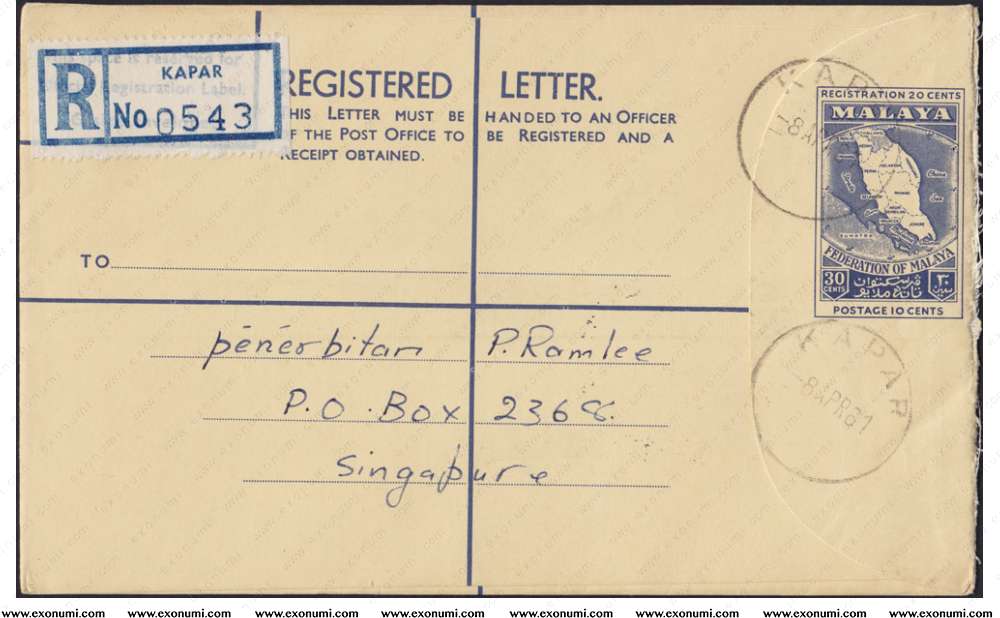 R
KAPAR
No 0543
REGISTERED LETTER.
THIS LETTER MUST BE HANDED TO AN OFFICER
OF THE POST OFFICE TO BE REGISTERED AND A
RECEIPT OBTAINED.
TO
penerbitan P. Ramlee
P.O. Box 2368.
Singapure
REGISTRATION 20 CENTS
MALAYA
FEDERATION OF MALAYA
30
CENTS
٣٠
سين
ڤرسكتوان
تانه ملايو
POSTAGE 10 CENTS
KAPAR
8 AP
KAPAR
8 APR 61
www.exonumi.com www.exonumi.com www.exonumi.com www.exonumi.com www.exonumi.com www.exonumi.com www.exonumi.com www.exonumi.com